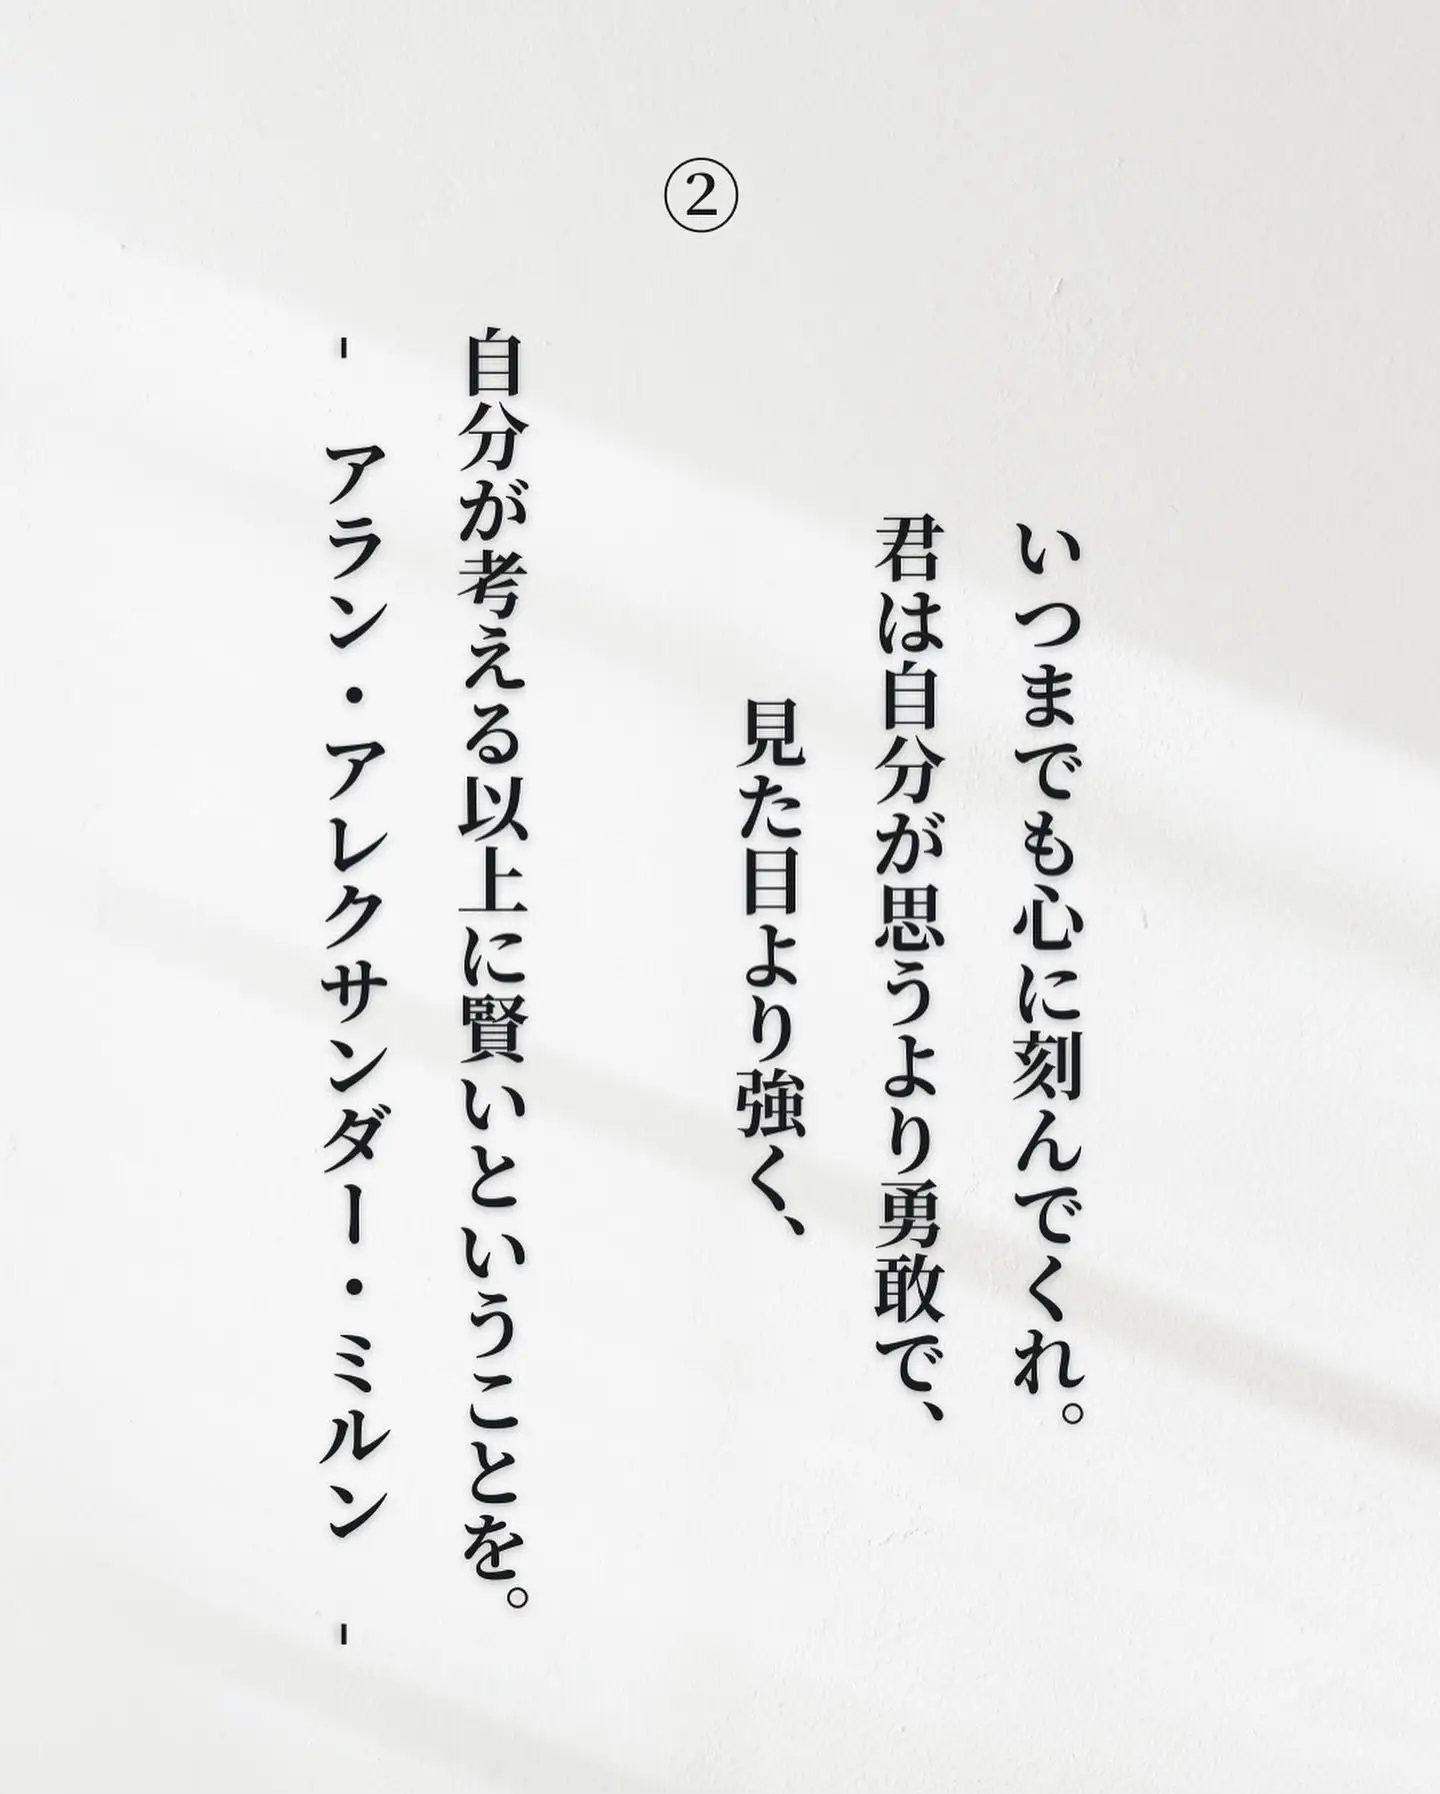 ②
いつまでも心に刻んでくれ。
君は自分が思うより勇敢で、
見た目より強く、
自分が考える以上に賢いということを。
- アラン・アレクサンダー・ミルン -